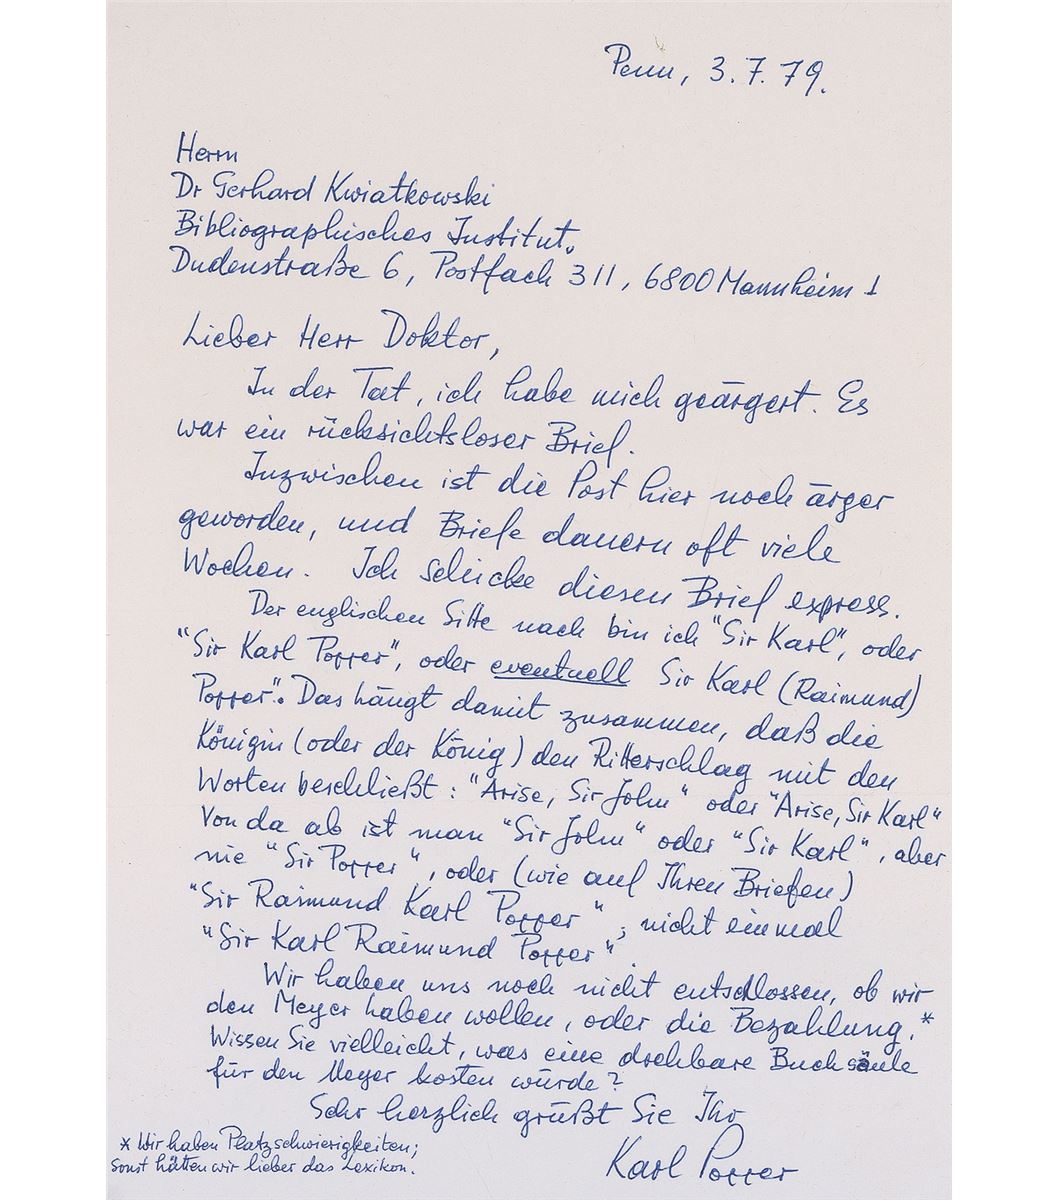 Penn, 3.7.79.
Herrn
Dr Gerhard Kwiatkowski
Bibliographisches Institut,
Dudenstraße 6, Postfach 311, 6800 Mannheim 1
Lieber Herr Doktor,
In der Tat, ich habe mich geärgert. Es
war ein rücksichtsloser Brief.
Inzwischen ist die Post hier noch ärger
geworden, und Briefe dauern oft viele
Wochen. Ich schicke diesen Brief express.
Der englischen Sitte nach bin ich "Sir Karl", oder
"Sir Karl Popper", oder eventuell Sir Karl (Raimund)
Popper". Das hängt damit zusammen, daß die
Königin (oder der König) den Ritterschlag mit den
Worten beschließt: "Arise, Sir John" oder "Arise, Sir Karl"
Von da ab ist man "Sir John" oder "Sir Karl", aber
nie "Sir Popper", oder (wie auf Ihren Briefen)
"Sir Raimund Karl Popper"; nicht einmal
"Sir Karl Raimund Popper".
Wir haben uns noch nicht entschlossen, ob wir
den Meyer haben wollen, oder die Bezahlung.*
Wissen Sie vielleicht, was eine drehbare Buchsäule
für den Meyer kosten würde?
Sehr herzlich grüßt Sie Ihr
Karl Popper
* Wir haben Platzschwierigkeiten;
sonst hätten wir lieber das Lexikon.